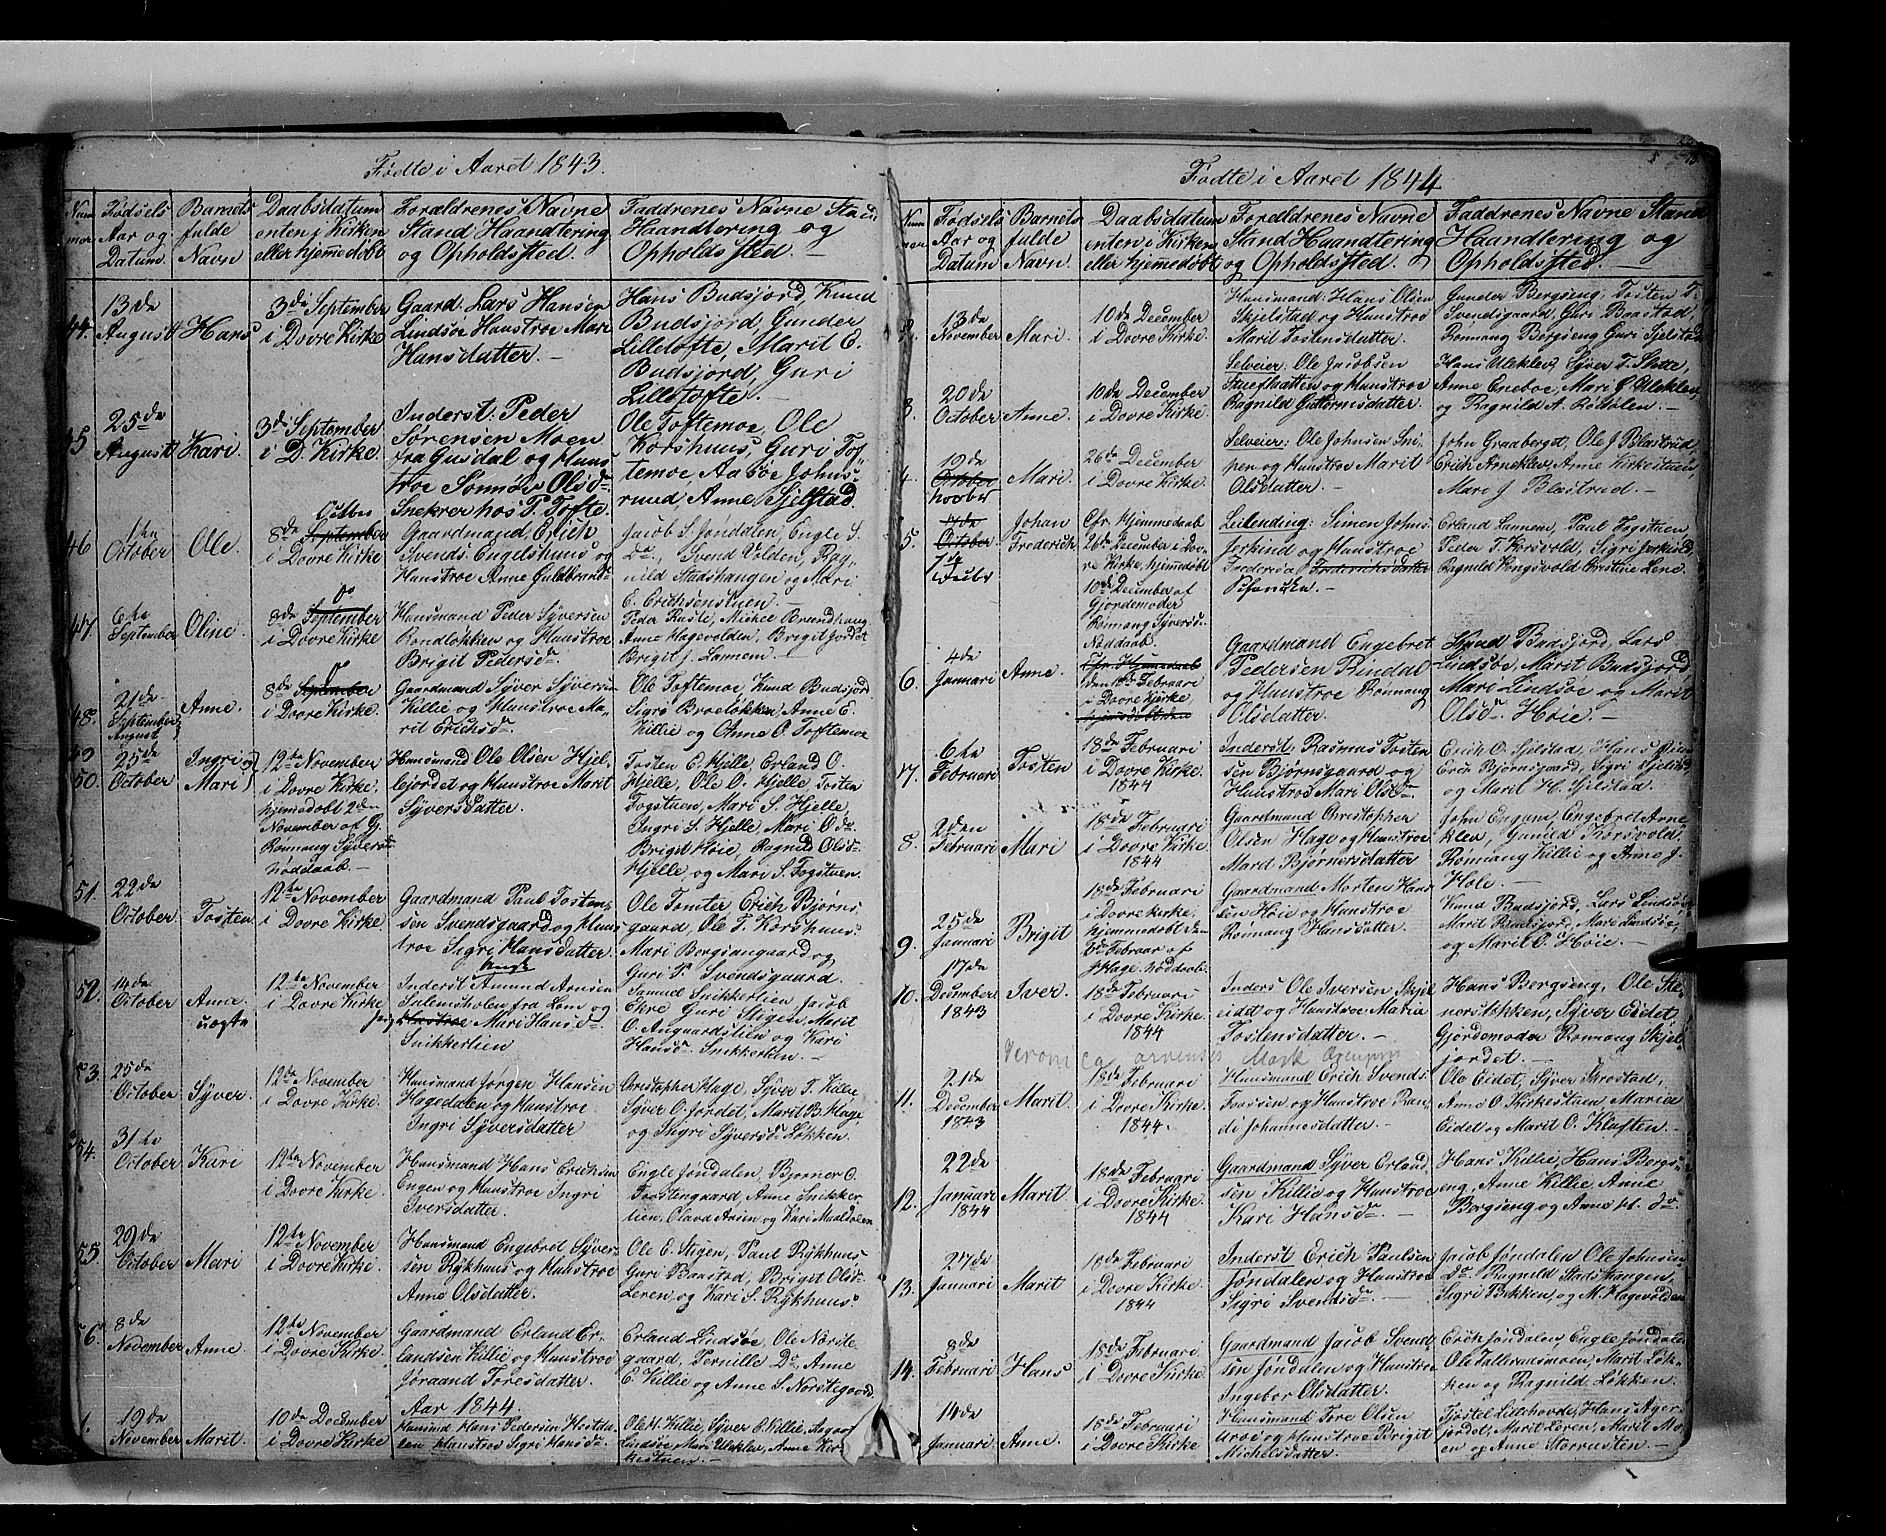 Fødte i Aaret 1843.
Num mer
Fødsels Aar og Datum
Barnets fulde Navn
Daabsdatum enten i Kirken eller hjemmedøbt
Forældrenes Navne Stand Haandtering og Opholdssted.
Faddrenes Navne Stand Haandtering og Opholdssted.
44.
13de August
Hans
3de September
i Dovre Kirke
Gaard: Lars Hansen
Lindsøe Hustroe Mari
Hansdatter.
Hans Budsjord, Knud
Budsjord, Gunder
Lilletofte, Marit E.
Budsjord, Guri
Lilletofte.
45
25de August
Kari.
3de September
i D. Kirke
Inderst: Peder
Sørensen Moen
fra Gusdal og Huus
troe Sonnøv Olsdr
Snekrer hos P. Tofte.
Ole Toftemoe, Ole
Korshuus, Guri Tof
temoe, Aaboe Johns
ruud, Anne Sjelstad
46
1ste October
Ole.
October
8de September
i Dovre Kirke
Gaardmand, Erich
Svends. Engelshuus og
Hustroe Anne Guldbrandsdr
Jacob S. Jøndalen, Engle S.
do., Svend Volden, Rag
nild Stadshaugen og Mari
E. Erichsenstuen.
47
6te September
Oline.
8de September
i Dovre Kirke
Huusmand Peder Syversen
Rondløkken og Huustroe
Brigit Pedersdr
Peder Rusti, Michel Brændhaug,
Anne Hagevolden, Brigit Jordet
Brigit J. Lannem.
48.
21de September
Anne.
8de September
i Dovre Kirke.
Gaardmand Syver Syversen
Killie og Huustroe Ma
rit Erichsdr
Ole Toftemoe, Knud Budsjord
Sigri Broeløkken, Anne E.
Killie og Anne O. Toftemoe
49
50.
25de October
Ingri og
Mari
12te November
i Dovre Kirke.
hjemmedøbt 2den
November af Gj.
Rønnaug Syversdr
nøddaab.
Huusmand Ole Olsen Hjel
lejordet og Huustroe Marit
Syversdatter.
Tosten E. Hjelle, Erland O.
Hjelle, Ole O. Hjelle, Tosten
Togstuen, Mari S. Hjelle,
Ingri S. Hjelle, Mari O. do.
Brigit Høie, Ragnild Olsdr
Hjelle, og Mari S. Togstuen.
51.
22de October
Tosten
12te November
i Dovre Kirke
Gaardmand Paul Tosten
sen Svendsgaard og Huus
troe Sigri Hansdatter.
Ole Tomter Erich Bjørns
gaard, Ole T. Korshuus
Mari Bergsengaard og
Guri P. Svendsgaard
52.
14de October
Anne.
uægte
12te November
i Dovre Kirke
Ungk
Inderst Amund Amsen
Sulemsholen fra Lom og
pig Hustroe Mari Hansdr
Snikkerlien
Samuel Snikkerlien Jacob
Ekre Guri Stigen, Marit
O. Angaardslien og Kari
Hansdr Snikkerlien.
53.
25de October
Syver.
12te November
i Dovre Kirke.
Huusmand Jørgen Hansen
Hagedalen og Huustroe
Ingri Syversdatter
Christopher Hage, Syver T. Killie
Syver O. Jordet, Marit B. Hage,
og Ingri Syversdr Løkken.
54.
31te October
Kari
12te November
i Dovre Kirke.
Huusmand Hans Erichsen
Engen og Huustroe Ingri
Iversdatter.
Engle Jøndalen, Bjørner O.
Toftengaard, Anne Snikker
lien, Olava Arsen og Kari Maaldalen
55.
29de October
Mari
12te November
i Dovre Kirke.
Huusmand Engebret Syver
sen Rykhuus og Huustroe
Anne Olsdatter.
Ole E. Stigen, Paul Rykhuus
Guri Baastad, Brigit Olsdr
Leren, og Kari S. Rykhuus.
56.
8de November
Anne
12te November
i Dovre Kirke.
Gaardmand Erland Er
landsen Killie og Huustroe
Jøraand Toresdatter.
Erland Lindsøe, Ole Norste
gaard, Pernille Do, Anne
E. Killie og Anne S. Norstegaard
Aar 1844.
1.
19de November
Marit.
10de December
i Dovre Kirke
Huusmd Hans Pedersen Hostda
len Huustroe Sigri Hansdr
Ole H. Killie, Syver O. Killie, Aagot
Lindsøe Mari Ulekleiv, Anne Kir
kestuen.
Fødte i Aaret 1844
Num mer
Fødsels Aar og Datum
Barnets fulde Navn.
Daabsdatum enten i Kirken eller hjemmedøbt
Forældrenes Navne Stand Haandtering og Opholdssted.
Faddrenes Navne Stand Haandtering og Opholdssted.
2.
13de November
Mari.
10de December
i Dovre Kirke.
Huusmand: Hans Olsen
Skjelstad og Huustroe
Marit Tostensdatter.
Gunder Bergseng, Tosten T.
Svendsgaard, Guri Baastad,
Rønnaug Bergseng Guri Sjelstad
3.
20de October
Anne.
10de December
i Dovre Kirke.
Selveier: Ole Jacobsen
Stueflaatten og Huustroe
Ragnild Guttormsdatter.
Hans Uleklev, Syver T. Slette,
Anne Eneboe, Mari J. Uleklev,
og Ragnild A. Rotølen.
4.
19de
October
novber
Mari.
26de December
i Dovre Kirke.
Selveier: Ole Johnsen Sni
pen og Huustroe Marit
Olsdatter.
John Graaberget, Ole J. Blæstrud,
Erich Arneklev, Anne Kirkestuen,
Mari J. Blæstrud.
5.
October.
Johan
Frederich
Cfr. Hjemmedaab
26de December i Dov
re Kirke, hjemmedøbt
10de December af
Gjordemoder
Rønnaug Syversdr
Nøddaab.
Leilending: Simen Johns.
Jorkind og Huustroe
Frederica Frederichsdatter
Erland Lannem, Paul Togstuen,
Peder T. Korsvold, Sigri Jorkind
Ragnild Kongsvold Cristine Lene.
6.
4de Januari
Anne.
Cfr. Hjemmedaab
den 18de Februari
i Dovre Kirke
hjemdøbt den
Gaardmand Engebret
Pedersen Rindal
og Huustroe Rønnaug
Olsdatter.
Knud Budsjord, Lars
Lindsøe, Marit Budsjord,
Mari Lindsøe og Marit
Olsdr Høie.
7.
6te Februari
Tosten
18de Februari
i Dovre Kirke.
1844
Inderst: Rasmus Tosten
sen Bjørnsgaard og
Huustroe Mari Olsdr
Erich O. Sjelstad, Hans
Erich Bjørnsgaard, Sigri Sjelstad
og Marit H. Sjelstad.
8.
2den Februari
Mari
18de Februari
i Dovre Kirke
1844
Gaardmand Christopher
Olsen Hage og Huustroe
Mard Bjørnersdatter
John Eugum, Engebret Arne
klev, Gunild Korsvold,
Rønnaug Killie og Anne J.
Hole.
9.
25de Januari
Brigit
18de Februari
i Dovre kirke,
hjemmedøbt den
2de Februar af
J. Hage. nøddaab.
Gaardmand Morten Han
sen Høie og Huustroe
Rønnaug Hansdatter.
Knud Budsjord, Lars Lindsøe,
Marit Budsjord, Mari Lindsøe,
og Marit O. Høie.
10.
17de December
1843
Iver.
18de Februari
i Dovre Kirke.
1844
Inders Ole Iversen Skjel
eidet og Huustroe Maria
Tostensdatter.
Hans Bergseng, Ole Ste
norsløkken, Syver Eidet,
Gjordemoder Rønnaug Skjel
jordet.
Veronica arvensis Mark Ærenpris
11.
21de December
1843
Marit.
18de Februari
i Dovre Kirke.
1844.
Huusmand Erich Svends.
Fossen og Huustroe Ran
di Johannesdatter.
Ole Eidet, Syver Skrostad,
Anne O. Kirkestuen Maria
Eidet og Marit O. Kluften.
12.
22de Januari
1844
Marit
18de Februari
i Dovre Kirke.
1844
Gaardmand Syver Erland
sen Killie og Huustroe
Kari Hansdr
Hans Killie, Hans Bergs
eng, Anne Killie, Anne
Bergseng og Anne H. do.
13.
27de Januari
Marit
18de Februari
i Dovre Kirke.
1844
Inderst Erich Paulsen
Jøndalen og Huustroe
Sigri Svendsdr
Jacob Jøndalen Ole Johnsen
Do Ragnild Stadshaugen,
Sigri Bekken, og M. Hagevolden
14.
8de Februari
Hans
18de Februari
i Dovre Kirke
Gaardmand Jacob Svend
sen Jøndalen og Huustroe
Ingebor Olsdatter.
Erich Jøndalen, Engle Jøndalen
Ole Tallerudsmoen, Marit Løk
ken og Ragnild Løkken.
14de Januari.
Anne.
18de Februari
i Dovre Kirke
Huusmand Tore Olsen
Uroe og Huustroe Brigit
Michelsdatter.
Tjostel Lillehovde, Hans Ager
jordet, Marit Leren, Marit Mo
en og Anne Storrusten